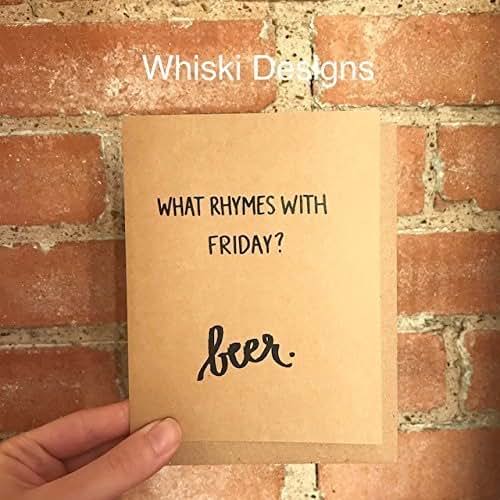 Whiski Designs
WHAT RHYMES WITH
FRIDAY?
beer.